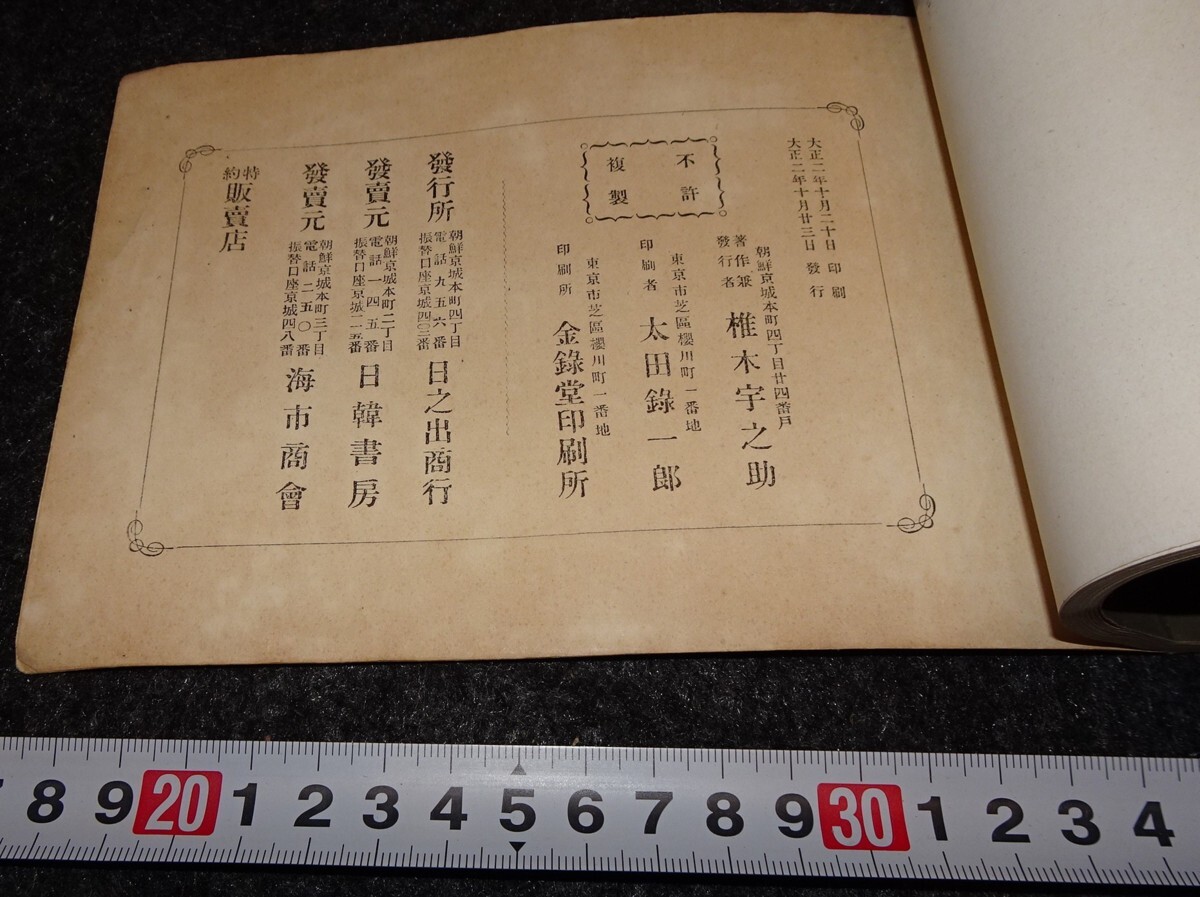 大正二年十月二十日印刷
大正二年十月廿三日發行
不許
複製
朝鮮京城本町四丁目廿四番戸
著作兼
發行者
椎木宇之助
東京市芝區櫻川町一番地
印刷者 太田錄一郎
東京市芝區櫻川町一番地
印刷所 金錄堂印刷所
發行所
朝鮮京城本町四丁目
電話九五六番
振替口座京城四〇三番
日之出商行
發賣元
朝鮮京城本町二丁目
電話一四五番
振替口座京城二一五番
日韓書房
發賣元
朝鮮京城本町三丁目
電話二五〇番
振替口座京城四八番
海市商會
特約
販賣店
8 9 20 1 2 3 4 5 6 7 8 9 30 1 2 3 4